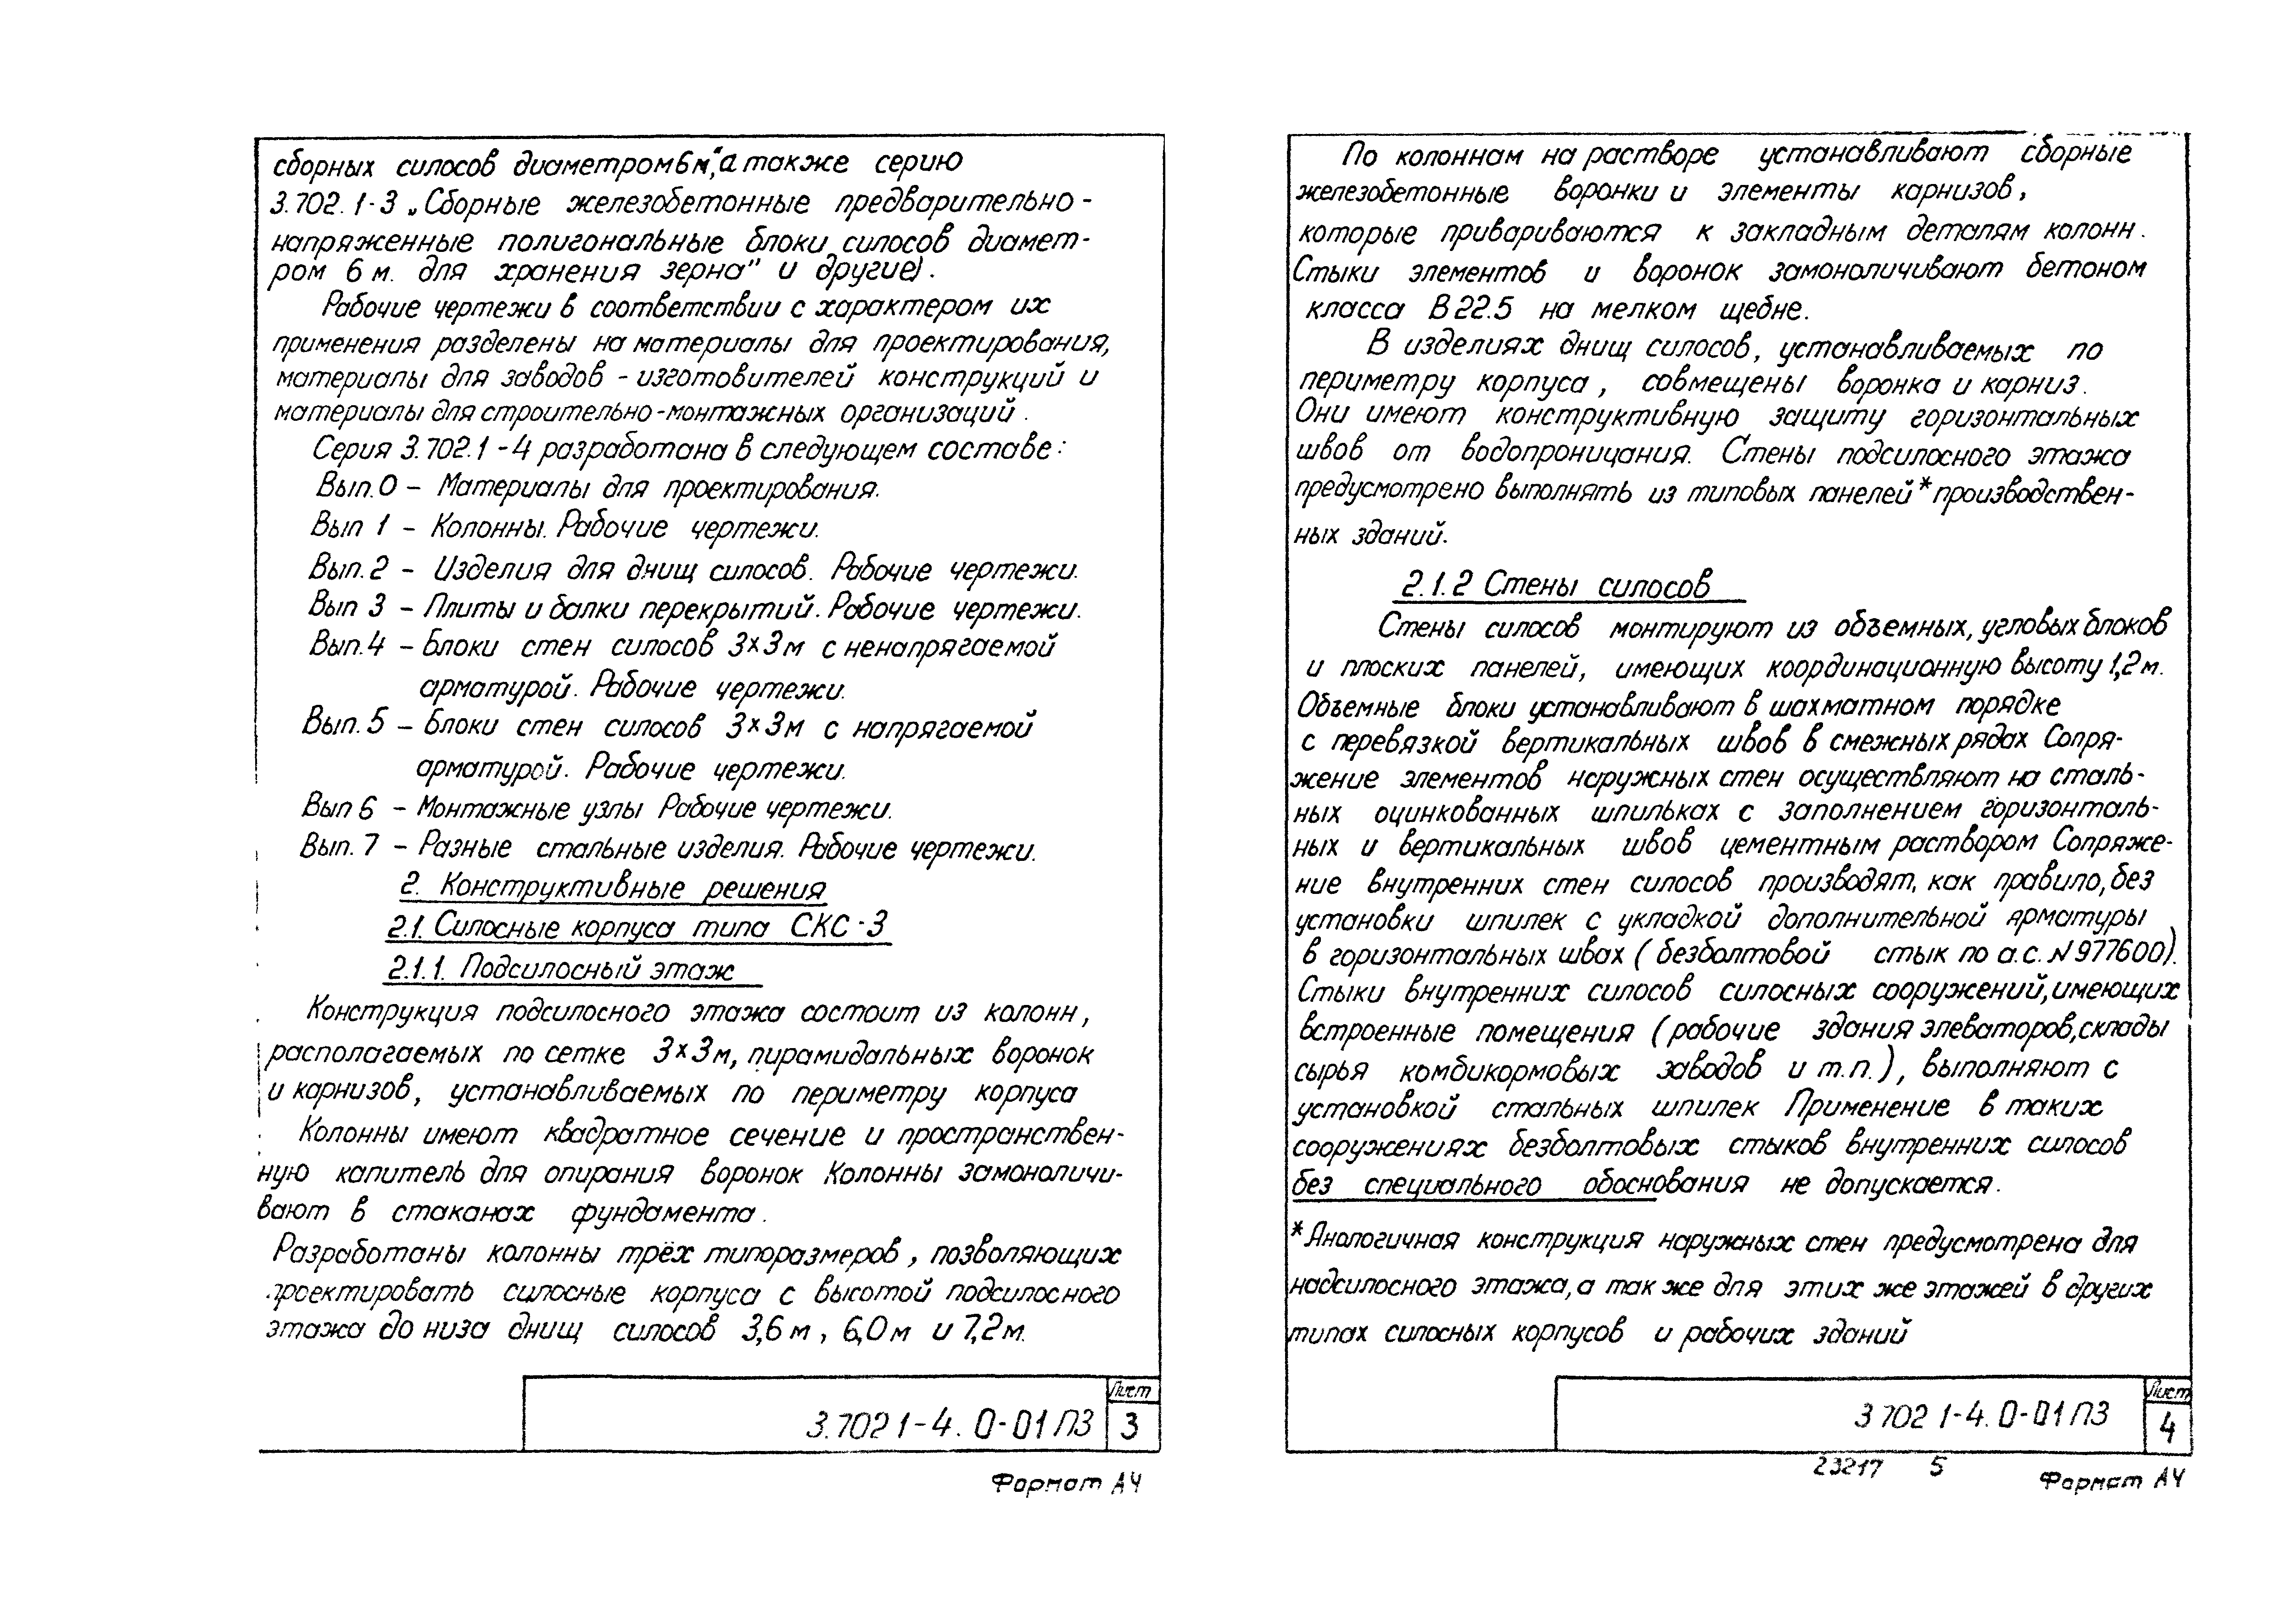 сборных силосов диаметром 6 м", а также серию
3.702.1-3 „Сборные железобетонные предварительно-
напряженные полигональные блоки силосов диамет-
ром 6 м. для хранения зерна" и другие).
Рабочие чертежи в соответствии с характером их
применения разделены на материалы для проектирования,
материалы для заводов - изготовителей конструкций и
материалы для строительно-монтажных организаций.
Серия 3.702.1-4 разработана в следующем составе:
Вып. 0 - Материалы для проектирования.
Вып 1 - Колонны. Рабочие чертежи.
Вып. 2 - Изделия для днищ силосов. Рабочие чертежи.
Вып 3 - Плиты и балки перекрытий. Рабочие чертежи.
Вып. 4 - Блоки стен силосов 3×3м с ненапрягаемой
арматурой. Рабочие чертежи.
Вып. 5 - Блоки стен силосов 3×3м с напрягаемой
арматурой. Рабочие чертежи.
Вып 6 - Монтажные узлы Рабочие чертежи.
Вып. 7 - Разные стальные изделия. Рабочие чертежи.
2. Конструктивные решения
2.1. Силосные корпуса типа СКС-3
2.1.1. Подсилосный этаж
Конструкция подсилосного этажа состоит из колонн,
располагаемых по сетке 3×3м, пирамидальных воронок
и карнизов, устанавливаемых по периметру корпуса
Колонны имеют квадратное сечение и пространствен-
ную капитель для опирания воронок Колонны замоноличи-
вают в стаканах фундамента.
Разработаны колонны трёх типоразмеров, позволяющих
проектировать силосные корпуса с высотой подсилосного
этажа до низа днищ силосов 3,6 м, 6,0 м и 7,2 м.
3.702 1-4. 0-01 ПЗ
Лист
3
Формат А4
По колоннам на растворе устанавливают сборные
железобетонные воронки и элементы карнизов,
которые привариваются к закладным деталям колонн.
Стыки элементов и воронок замоноличивают бетоном
класса В 22.5 на мелком щебне.
В изделиях днищ силосов, устанавливаемых по
периметру корпуса, совмещены воронка и карниз.
Они имеют конструктивную защиту горизонтальных
швов от водопроницания. Стены подсилосного этажа
предусмотрено выполнять из типовых панелей* производствен-
ных зданий.
2.1.2 Стены силосов
Стены силосов монтируют из объемных, угловых блоков
и плоских панелей, имеющих координационную высоту 1,2 м.
Объемные блоки устанавливают в шахматном порядке
с перевязкой вертикальных швов в смежных рядах Сопря-
жение элементов наружных стен осуществляют на сталь-
ных оцинкованных шпильках с заполнением горизонталь-
ных и вертикальных швов цементным раствором Сопряже-
ние внутренних стен силосов производят, как правило, без
установки шпилек с укладкой дополнительной арматуры
в горизонтальных швах (безболтовой стык по а.с. №977600).
Стыки внутренних силосов силосных сооружений, имеющих
встроенные помещения (рабочие здания элеваторов, склады
сырья комбикормовых заводов и т.п.), выполняют с
установкой стальных шпилек Применение в таких
сооружениях безболтовых стыков внутренних силосов
без специального обоснования не допускается.
*Аналогичная конструкция наружных стен предусмотрена для
надсилосного этажа, а так же для этих же этажей в других
типах силосных корпусов и рабочих зданий
3 702 1-4. 0-01 ПЗ
Лист
4
23217 5
Формат А4